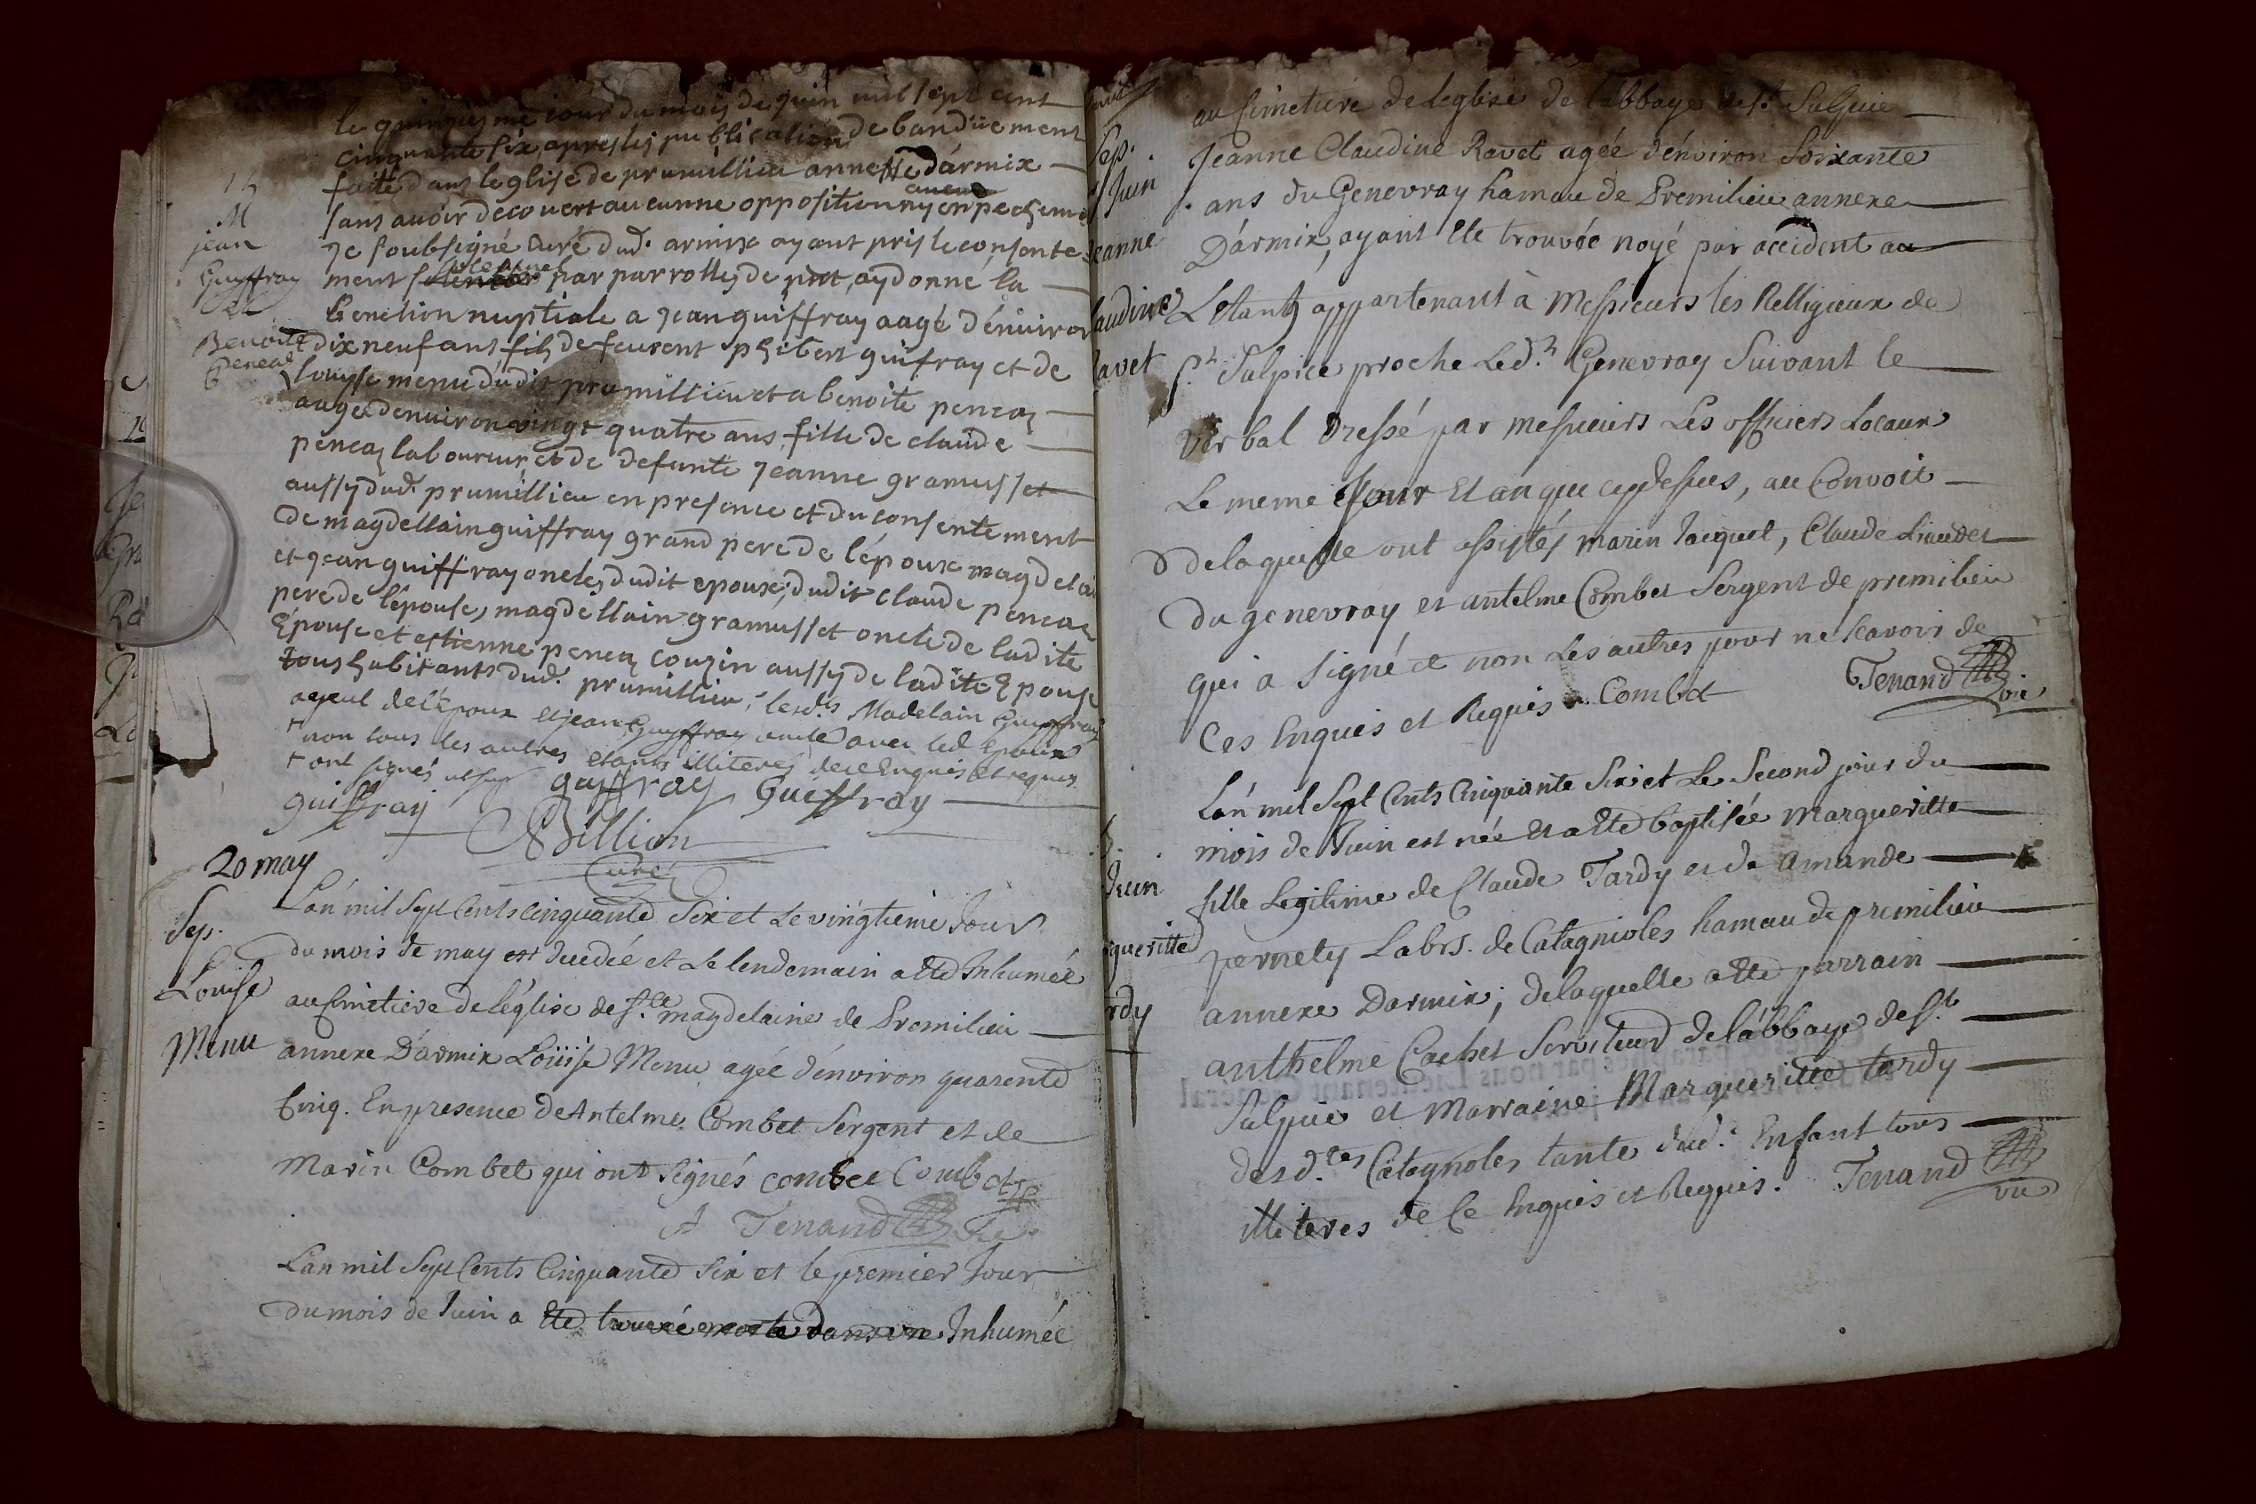 le quinziesme jour du moys de juin mil sept cent
cinquante six apres les publication de ban düement
faitte dans leglise de prumillieu annesse dármix
sans avoir decouvert aucunne opposition ny enpechement
aucun
15
M
jean
Guyffray
et
Benoite
Peneaz
Je soubsigné curé dud. armix ayant pris le consente
ment par parrolles de pnt, ay donné la
benection nuptiale a jean guiffray aagé dénviron
dix neuf ans fils de feu philibert guifray et de
louyse menu dudit prumillieu et a benoite peneaz
aagée denviron vingt quatre ans fille de claude
peneaz laboureur et de defunte jéanne gramusset
aussy dud. prumillieu en presence et du consentement
de magdellain guiffray grand pere de lépoux magdelain
et jean guiffray oncles dudit epoux, dudit claude peneaz
pere de lépouse, magdellain gramusset oncle de ladite
Epouse et estienne peneaz couzin aussy de ladite Epouse
tous habitants dud. prumillieu, lesd.ts Madelain Guyffray
ayeul de lépoux et jean Guyffray oncle avec led Epoux
ont signés
non tous les autres etants illiteres de ce Enquis et requis
guiffray guffray Guiffray
Billion
Curé
20 may
Sep.
Louise
Menu
Lán mil Sept Cents cinquante Six et Le vingtieme Jour
du mois de may est decedée et Le lendemain a ete Inhumée
au Cimetiere de léglise de S.te magdelaine de Premilieu
annexe D'armix Loüise Menu agée dénviron quarente
Cinq. En presence de Antelme Combet Sergent et de
Marin Combet qui ont Signés combet Combet
Tenand vic
Lan mil Sept Cents Cinquante Six et le premier Jour
du mois de Juin a Eté trouvée morte dans un Inhumée
Sep.
Juin
Jeanne
Claudine
Ravet
au Cimetiere de léglise de lábbaye de S.t Sulpice
Jeanne Claudine Ravet agée dénviron Soixante
ans du Genevray hamau de Premilieu annexe
Dármix, ayant Ete trouvée noyé par accident au
Létant appartenant à Messieurs les Relligieux de
S.t Sulpice proche Led.t Genevray Suivant le
Verbal Dressé par messieurs Les officiers Locaux
Le meme Jour Et an que cy dessus, au Convoit
de laquelle ont assistés marin Jacquet, Claude Liaudet
du genevray et antelme Combet Sergent de premilieu
qui a Signé et non Les autres pour ne scavoir de
Ces Enquis et Requis Combet Tenand vic
Juin
Margueritte
Tardy
Lán mil Sept Cents Cinquante Six et Le Second jour du
mois de Juin est née et a Eté baptisée Margueritte
fille Legitime de Claude Tardy et de Amande
pernety Labrs. de Catagnioles hamau de premilieu
annexe Darmix, de laquelle a Ete parrain
anthelme Cachet Serviteur de lábbaye de S.t
Sulpice et Marraine Margueritte tardy
des d.tes Catagnoles tante dud. Enfant tous
illiteres de Ce Enquis et Requis. Tenand vic